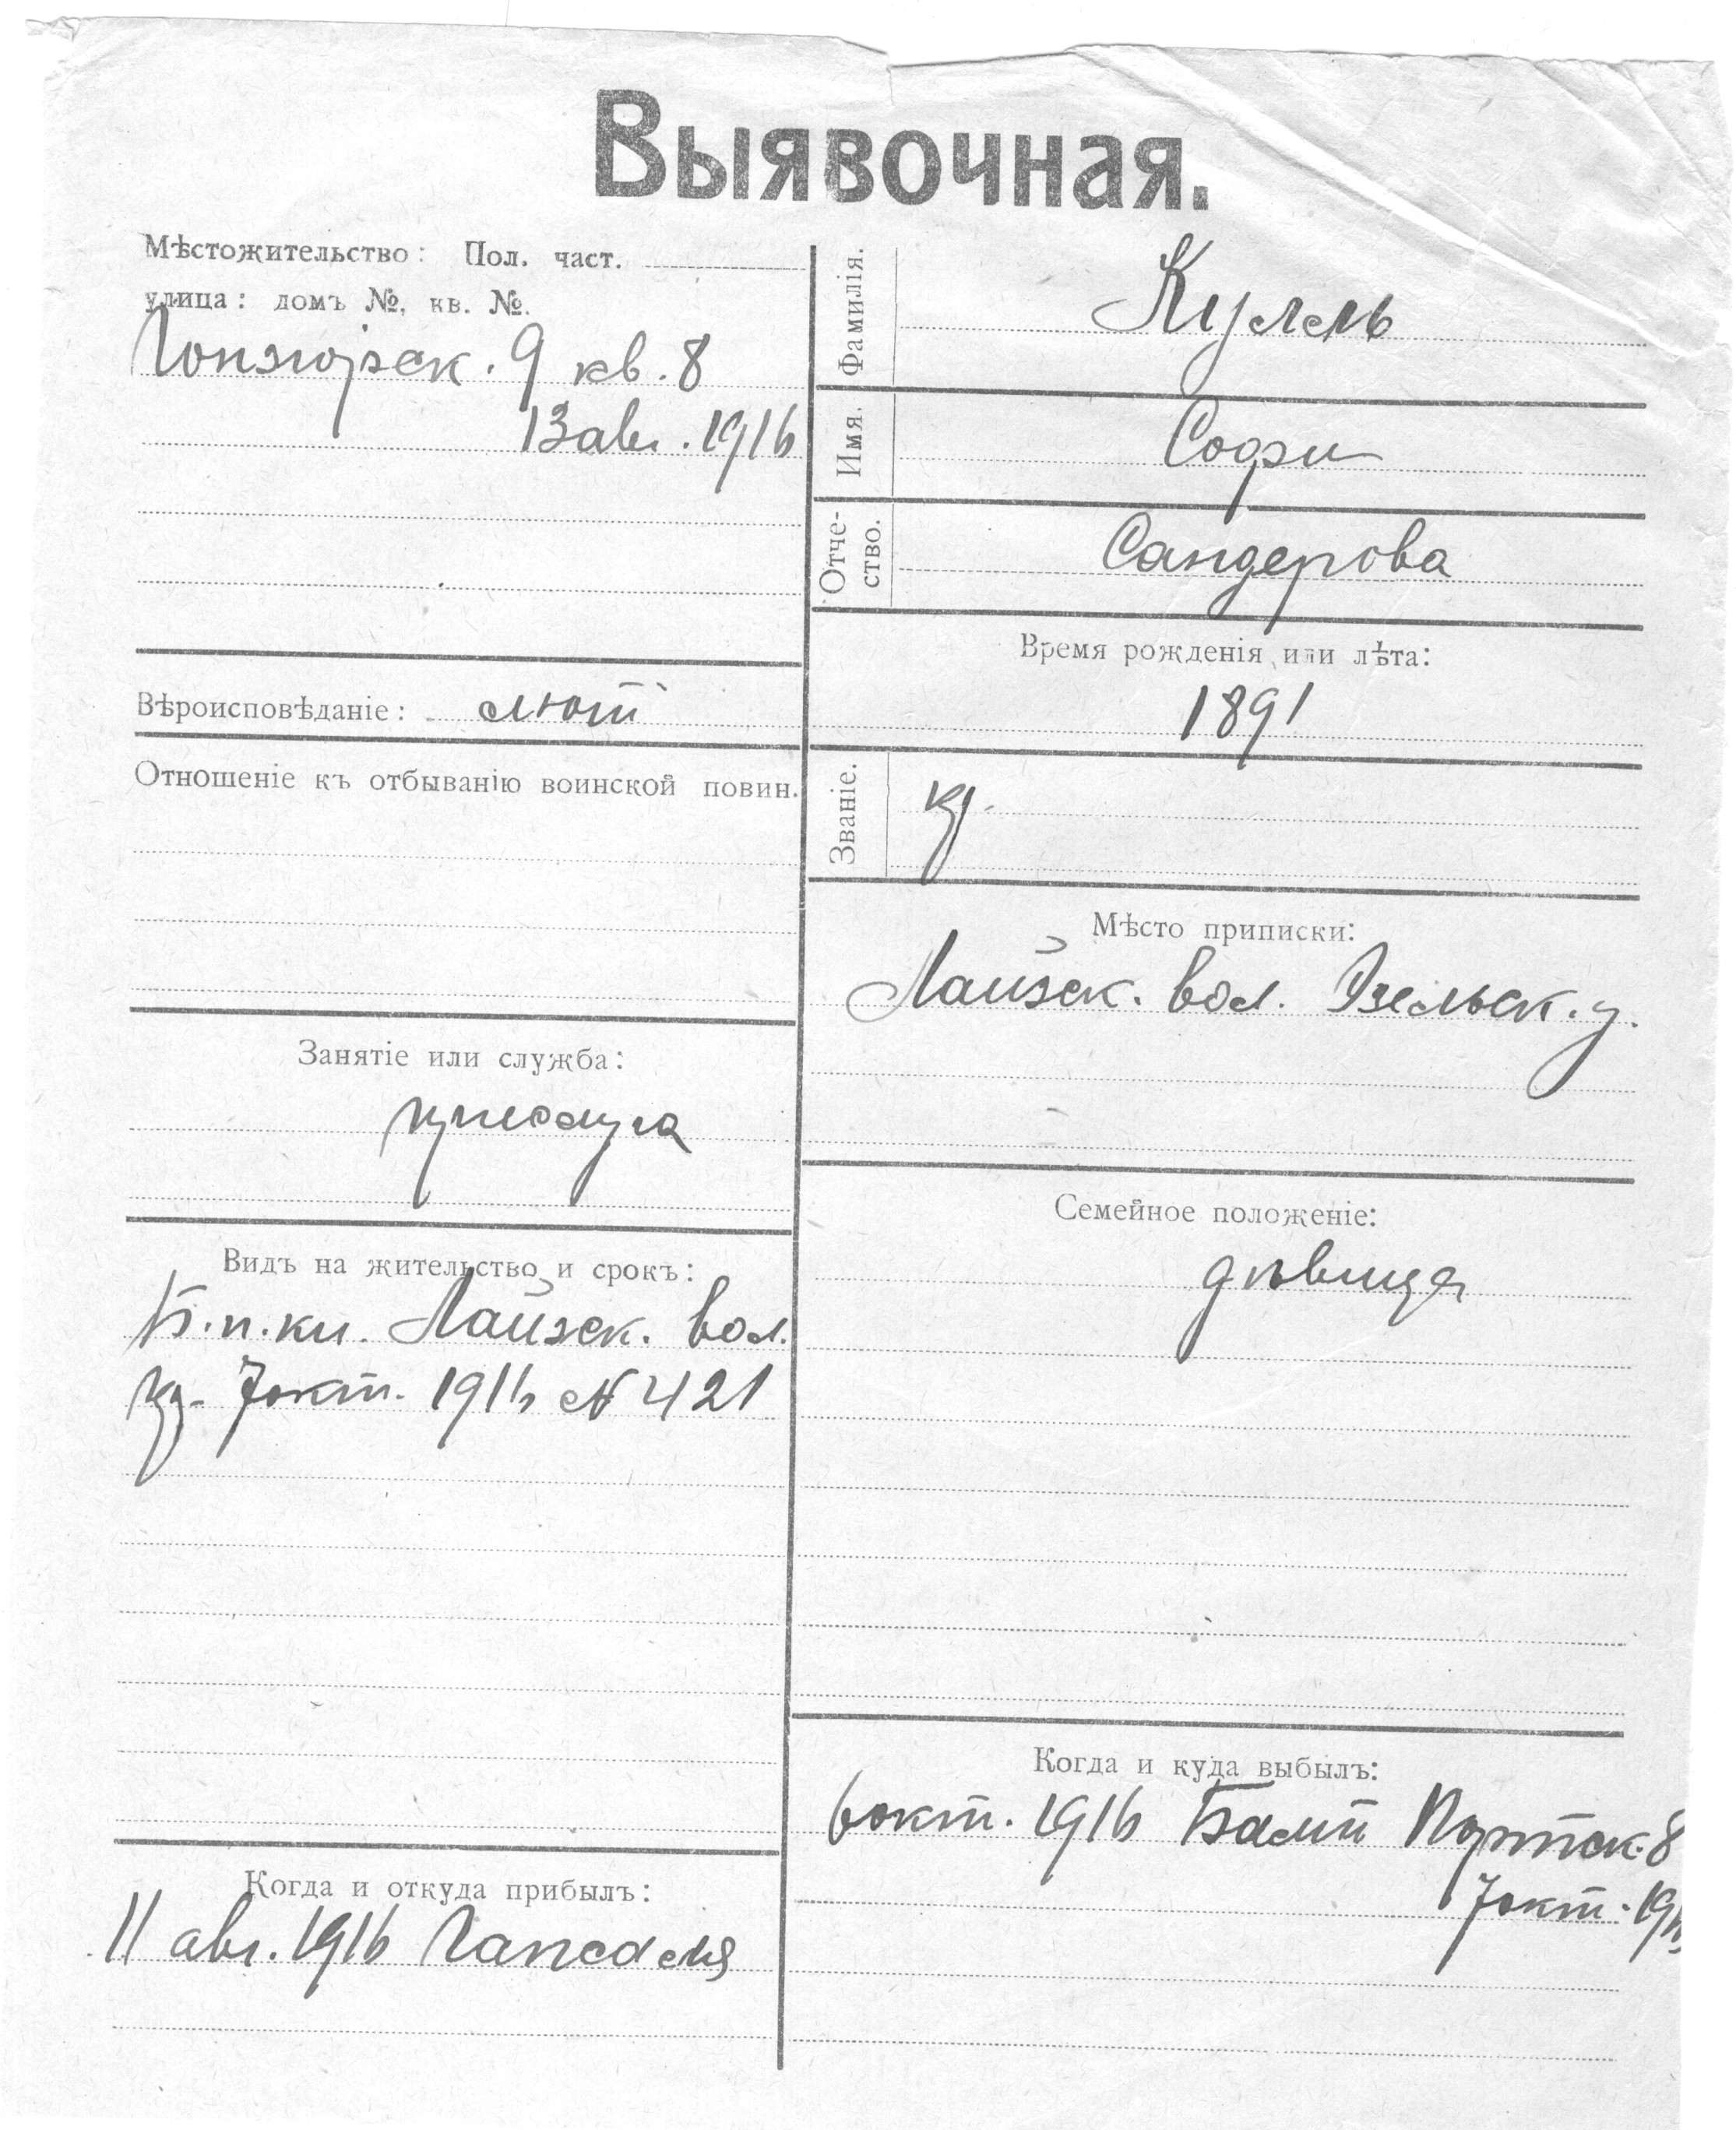 Выявочная.
Мѣстожительство: Пол. част.
улица: домъ №, кв. №.
Гонзиорск. 9 кв. 8
13 авг. 1916
Вѣроисповѣданіе: лют
Отношеніе къ отбыванію воинской повин.
Занятіе или служба:
прислуга
Видъ на жительство и срокъ:
Б.п.кн. Лайзск. вол.
7 окт. 1916 № 421
Когда и откуда прибылъ:
11 авг. 1916 Гапсаля
Фамилія.
Кулль
Имя.
Софи
Отче-
ство.
Сандерова
Время рожденія или лѣта:
1891
Званіе.
кр.
Мѣсто приписки:
Лайзск. вол. Эзельск. у.
Семейное положеніе:
дѣвица
Когда и куда выбылъ:
6 окт. 1916 Балт Портск. 8
7 окт. 1916